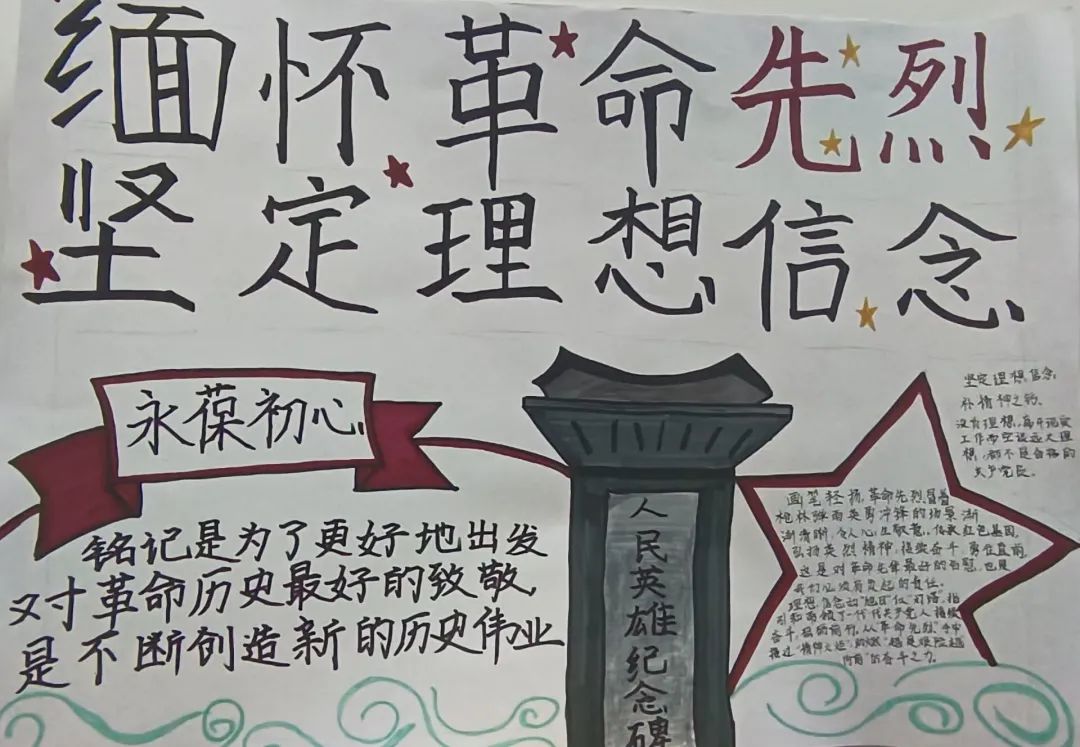 缅怀革命先烈
坚定理想信念
永葆初心
铭记是为了更好地出发
对革命历史最好的致敬,
是不断创造新的历史伟业
人民英雄纪念碑
坚定理想信念
补精神之钙。
没有理想,离开现实
工作而空谈远大理
想,都不是合格的
共产党员。
画笔轻扬,革命先烈冒着
枪林弹雨英勇冲锋的场景渐
渐清晰,令人心生敬意。传承红色基因,
弘扬英烈精神,接续奋斗,勇往直前,
这是对革命先辈最好的告慰,也是
我们必须肩负起的责任。
理想信念如旭日、似灯塔,指
引和激励了一代代共产党人接续
奋斗砥砺前行。从革命先烈手中
接过"精神火炬",
向前"的奋斗之力。